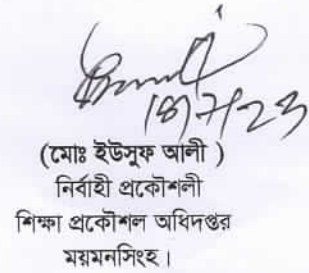 (মোঃ ইউসুফ আলী )
নির্বাহী প্রকৌশলী
শিক্ষা প্রকৌশল অধিদপ্তর
ময়মনসিংহ।